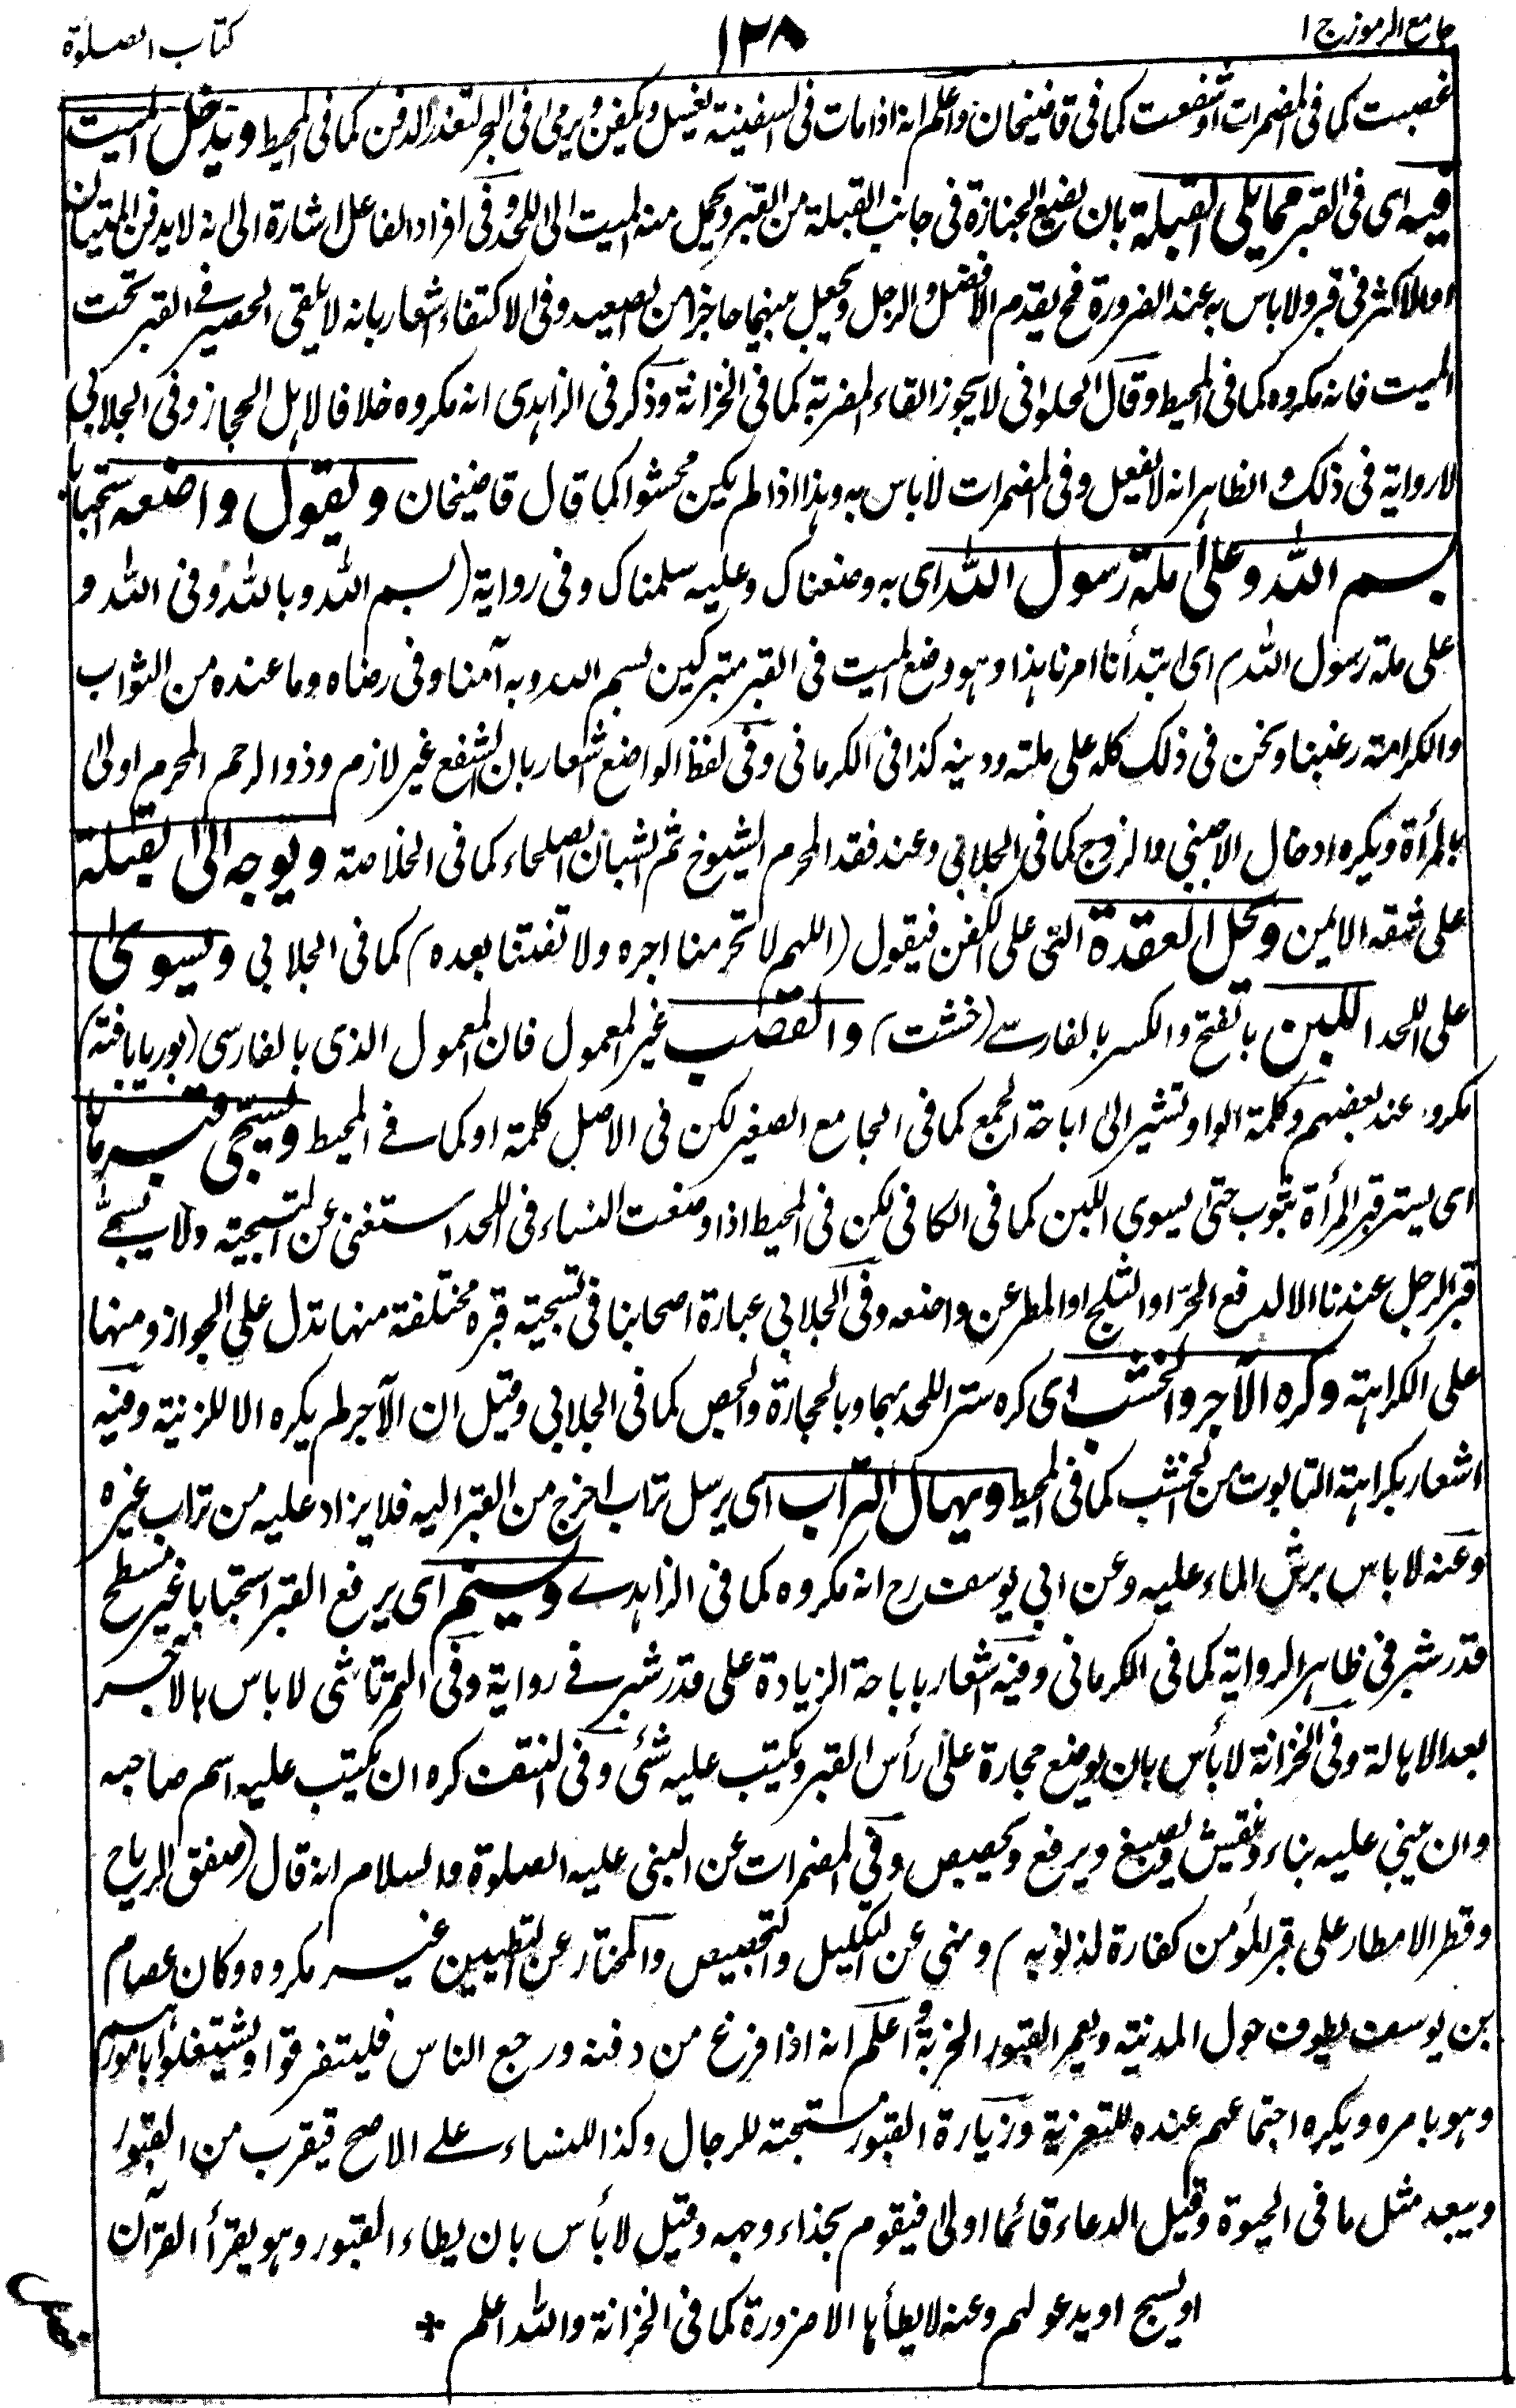 جامع الرموز ج ا
١٢٨
كتاب الصلوة
غصبت كما فى المضمرات او شفعت كما فى قاضيخان واعلم انه اذا مات فى السفينة يغسل ويكفن ويرمى فى البحر لتعذر الدفن كما فى المحيط ويدخل الميت
فيه اى فى القبر مما يلى القبلة بان يضع الجنازة فى جانب القبلة من القبر ويحمل منه الميت الى اللحد وفى افراد الفاعل اشارة الى انه لا يدفن الميتان
او الاكثر فى قبر ولا باس به عند الضرورة فح يقدم الافضل والرجل ويجعل بينهما حاجزا من الصعيد وفى الاكتفاء اشعار بانه لا يلقى الحصير فى القبر تحت
الميت فانه مكروه كما فى المحيط وقال الحلوانى لا يجوز القاء المضربة كما فى الخزانة وذكر فى الزاهدى انه مكروه خلافا لاهل الحجاز وفى الجلابى
لا رواية فى ذلك والظاهر انه لا يفعل وفى المضمرات لا باس به وهذا اذا لم يكن محشوا كما قال قاضيخان ويقول واضعه استحبابا
بسم الله وعلى ملة رسول الله اى به وضعناك وعليه سلمناك وفى رواية (بسم الله وبالله وفى الله و
على ملة رسول الله) اى ابتدأنا امرنا هذا وهو وضع الميت فى القبر متبركين بسم الله وبه آمنا وفى رضاه وما عنده من الثواب
والكرامة رغبنا ونحن فى ذلك كله على ملته ودينه كذا فى الكرمانى وفى لفظ الواضع اشعار بان الشفع غير لازم وذو الرحم المحرم اولى
بالمرأة ويكره ادخال الاجنبى والزوج كما فى الجلابى وعند فقد المحرم الشيوخ ثم الشبان الصلحاء كما فى الخلاصة ويوجه الى القبلة
على شقه الايمن ويحل العقدة التى على الكفن فيقول (اللهم لا تحرمنا اجره ولا تفتنا بعده) كما فى الجلابى ويسوى
على اللحد اللبن بالفتح والكسر بالفارسے (خشت) والقصب غير المعمول فان المعمول الذى بالفارسى (بوريا بافته)
مكروه عند بعضهم وكلمة الواو تشير الى اباحة الجمع كما فى الجامع الصغير لكن فى الاصل كلمة او كما فے المحيط ويسجى قبرها
اى يستر قبر المرأة بثوب حتى يسوى اللبن كما فى الكافى لكن فى المحيط اذا وضعت النساء فى اللحد استغنى عن التسجية ولا يسجى
قبر الرجل عندنا الا لدفع الحرّ او الثلج او المطر عن واضعه وفى الجلابى عبارة اصحابنا فى تسجية قبره مختلفة منها تدل على الجواز ومنها
على الكراهة وكره الآجر والخشب اى كره ستر اللحد بهما وبالحجارة والجص كما فى الجلابى وقيل ان الآجر لم يكره الا للزينة وفيه
اشعار بكراهة التابوت من الخشب كما فى المحيط ويهال التراب اى يرسل تراب اخرج من القبر اليه فلا يزاد عليه من تراب غيره
وعنه لا باس برش الماء عليه وعن ابى يوسف رح انه مكروه كما فى الزاهدے ويسنم اى يرفع القبر استحبابا غير مسطح
قدر شبر فى ظاهر الرواية كما فى الكرمانى وفيه اشعار باباحة الزيادة على قدر شبر فے رواية وفى التمرتاشى لا باس بالآجر
بعد الاهالة وفى الخزانة لا بأس بان يوضع حجارة على رأس القبر ويكتب عليه شئ وفى النتف كره ان يكتب عليه اسم صاحبه
وان يبنى عليه بناء وينقش ويصبغ ويرفع ويجصص وفى المضمرات عن النبى عليه الصلوة والسلام انه قال (صفق الرياح
وقطر الامطار على قبر المؤمن كفارة لذنوبه) ونهى عن التكليل والتجصيص والمختار عن التطيين غير مكروه وكان عصام
بن يوسف يطوف حول المدينة ويعمر القبور الخربة واعلم انه اذا فرغ من دفنه ورجع الناس فليتفرقوا ويشتغلوا بامورهم
وهو بامره ويكره اجتماعهم عنده للتعزية وزيارة القبور مستحبة للرجال وكذا للنساء علے الاصح فيقرب من القبور
ويبعد مثل ما فى الحيوة وقيل الدعاء قائما اولى فيقوم بحذاء وجهه وقيل لا بأس بان يطاء القبور وهو يقرأ القرآن
او يسبح او يدعو لهم وعنه لا يطأها الا ضرورة كما فى الخزانة والله اعلم *